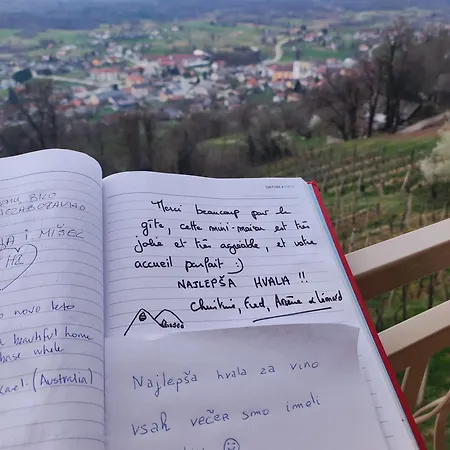 BILO
NEZABORAVNO
I MIŠEL
HI
novo leto
a beautiful home
base while
(Australia)
Merci beaucoup pour le
gîte, cette mini-maison est très
jolie et très agréable, et votre
accueil parfait :)
NAJLEPŠA HVALA !!
Fred,
Najlepša hvala za vino
vsak večer smo imeli